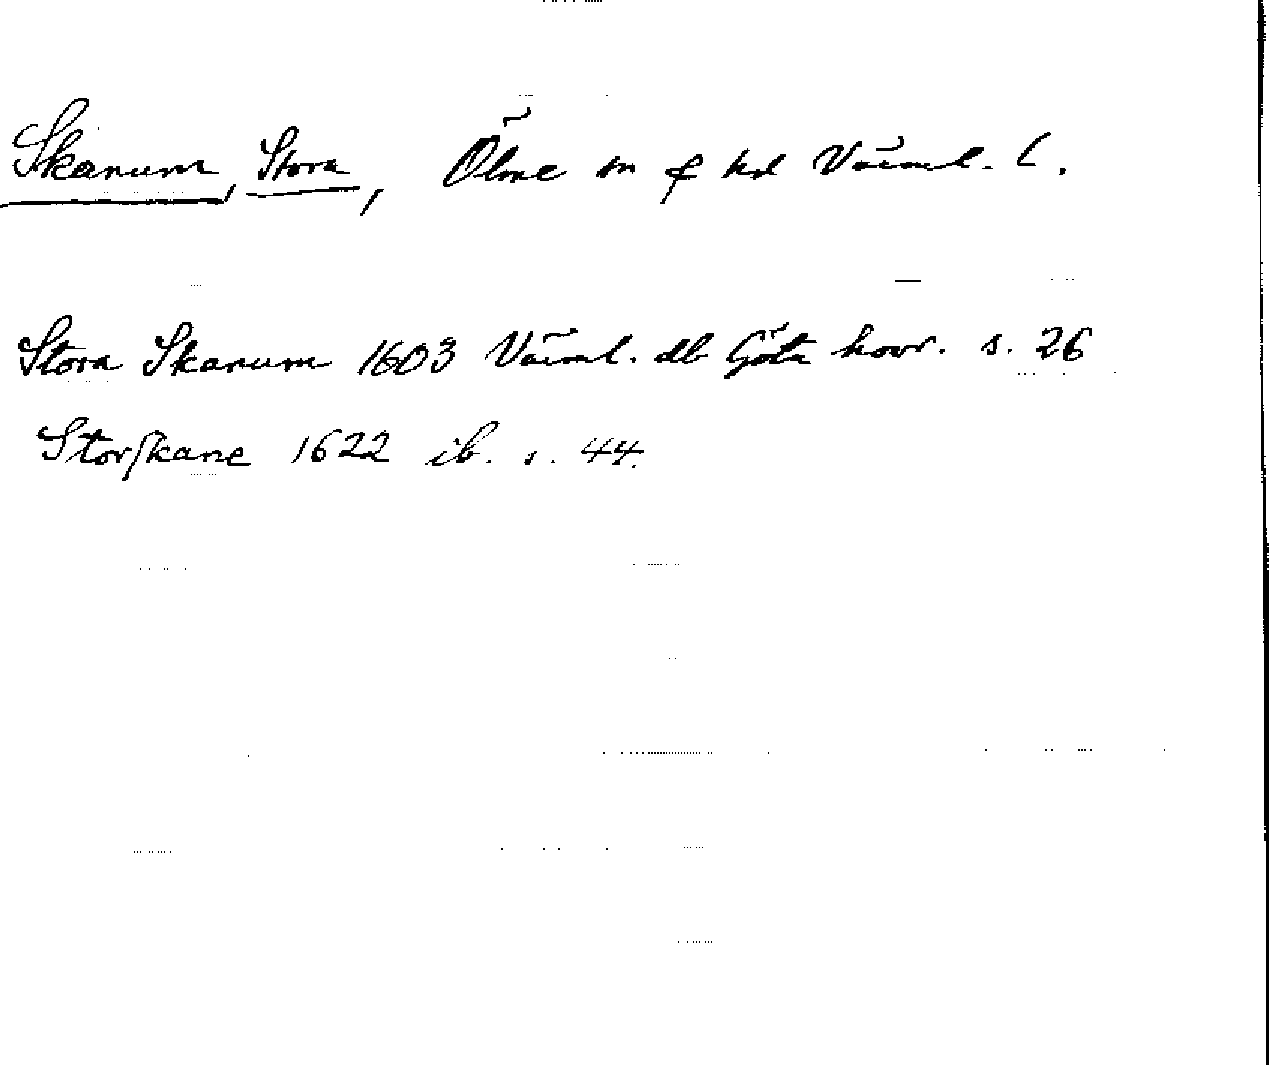 Skanum, Stora, Ölme sn o hd Värml. l.
Stora Skanum 1603 Värml. db Göta hovr. s. 26
Storskane 1622 ib. s. 44.